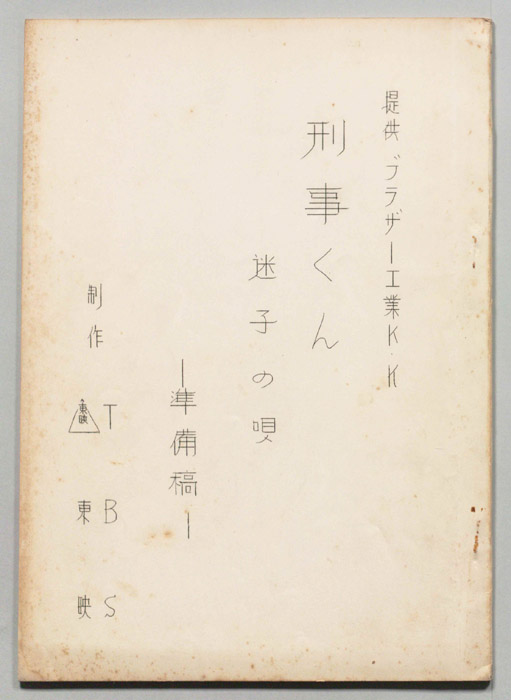 提供 ブラザー工業K.K
刑事くん
迷子の唄
―準備稿―
制作 TBS
東映
東映